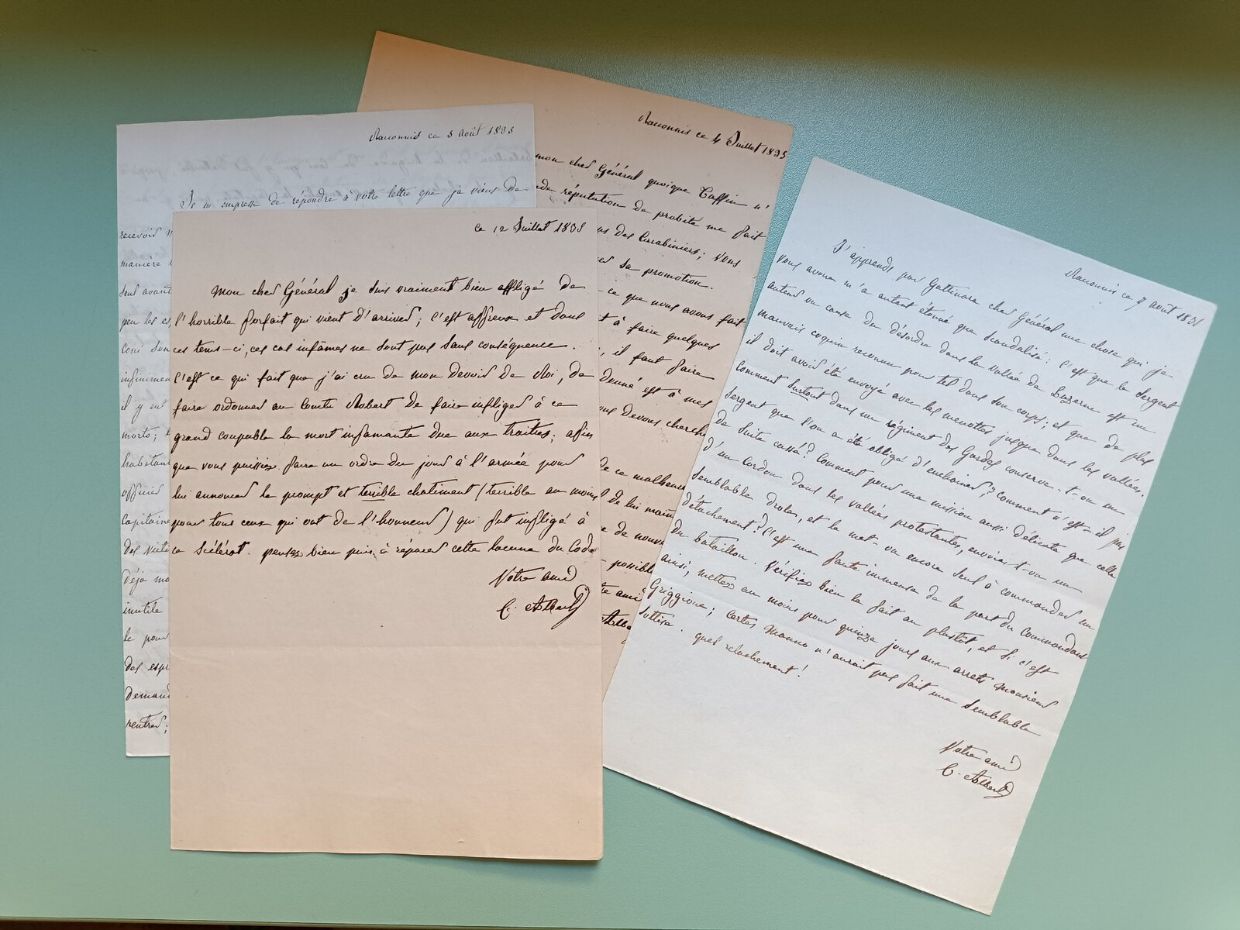 Raconnis ce 5 août 1835
Je m'empresse de répondre à votre lettre que je viens de
recevoir
manière
peu les
Coni
infiniment
il y
morts;
habitans
officier
Capitaine
des
déjà
inutile
le pour
des
demand
rentrer;
Raconnis ce 4 Juillet 1835
mon cher Général quoique Caffin n'
réputation de probité me fait
des Carabiniers; Vous
sa promotion.
ce que nous avons fait
à faire quelques
il faut faire
donné est à mes
devons cherch
ce malheur
de lui
de nouv
possible
ami
ce 12 Juillet 1835
mon cher Général je suis vraiment bien affligé de
l'horrible forfait qui vient d'arriver; c'est affreux et dans
ces tems-ci, ces cas infâmes ne sont pas sans conséquence.
C'est ce qui fait que j'ai cru de mon devoir de Roi, de
faire ordonner au Comte Robert de faire infliger à ce
grand coupable la mort infamante due aux traitres; afin
que vous puissiez faire un ordre du jour à l'armée pour
lui annoncer le prompt et terrible chatiment (terrible au moins
pour tous ceux qui ont de l'honneur) qui fut infligé à
ce Scélérat. pensez bien puis, à réparer cette lacune du Code
Votre ami
C. Albert
Raconnis ce 8 août 1835
J'apprends par Gattinara cher Général une chose qui je
vous avoue m'a autant étonné que scandalisé; C'est que le Sergent
auteur ou cause du désordre dans la vallée de Luzerne est un
mauvais coquin reconnu pour tel dans son corps; et que de plus
il doit avoir été envoyé avec les menottes jusque dans les vallées.
Comment surtout dans un régiment des Gardes conserve-t-on un
Sergent que l'on a été obligé d'enchainer? Comment n'est-il pas
de suite cassé? Comment pour une mission aussi délicate que celle
d'un Cordon dans les vallées protestantes, envoie-t-on un
semblable drôle, et le met-on encore seul à commander un
détachement? C'est une faute immense de la part du Commandant
du bataillon. Vérifiez bien le fait au plustôt, et si c'est
ainsi, mettez au moins pour quinze jours aux arrets monsieur
Griggione; certes Manno n'aurait pas fait une semblable
Sottise. quel relachement!
Votre ami
C. Albert